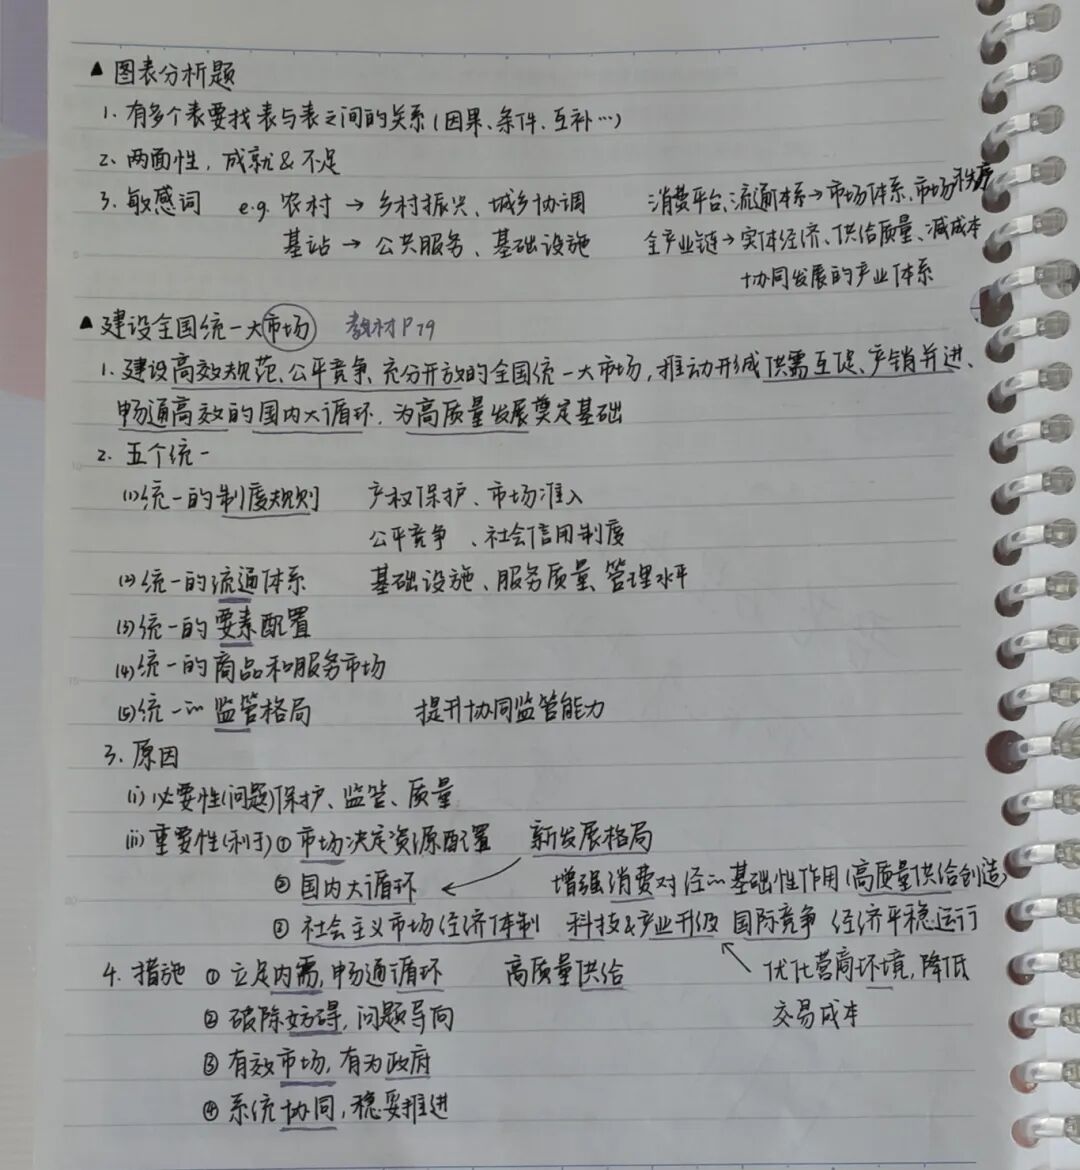 ▲图表分析题
1. 有多个表要找表与表之间的关系(因果、条件、互补…)
2、两面性, 成就&不足
3. 敏感词 e.g. 农村 → 乡村振兴、城乡协调 消费平台、流通体系→市场体系、市场秩序
基站 → 公共服务、基础设施 全产业链→实体经济、供给质量、减成本
协同发展的产业体系
▲建设全国统一大市场 教材P79
1. 建设高效规范、公平竞争、充分开放的全国统一大市场, 推动形成供需互促、产销并进、
畅通高效的国内大循环. 为高质量发展奠定基础
2. 五个统一
(1)统一的制度规则 产权保护、市场准入
公平竞争、社会信用制度
(2)统一的流通体系 基础设施、服务质量、管理水平
(3)统一的要素配置
(4)统一的商品和服务市场
(5)统一的监管格局 提升协同监管能力
3. 原因
(i)必要性(问题)保护、监管、质量
(ii)重要性(利于)①市场决定资源配置 新发展格局
②国内大循环 ← 增强消费对经的基础性作用(高质量供给创造)
③社会主义市场经济体制 科技&产业升级 国际竞争 经济平稳运行
4. 措施 ①立足内需, 畅通循环 高质量供给 优化营商环境, 降低
②破除妨碍, 问题导向 交易成本
③有效市场, 有为政府
④系统协同, 稳妥推进